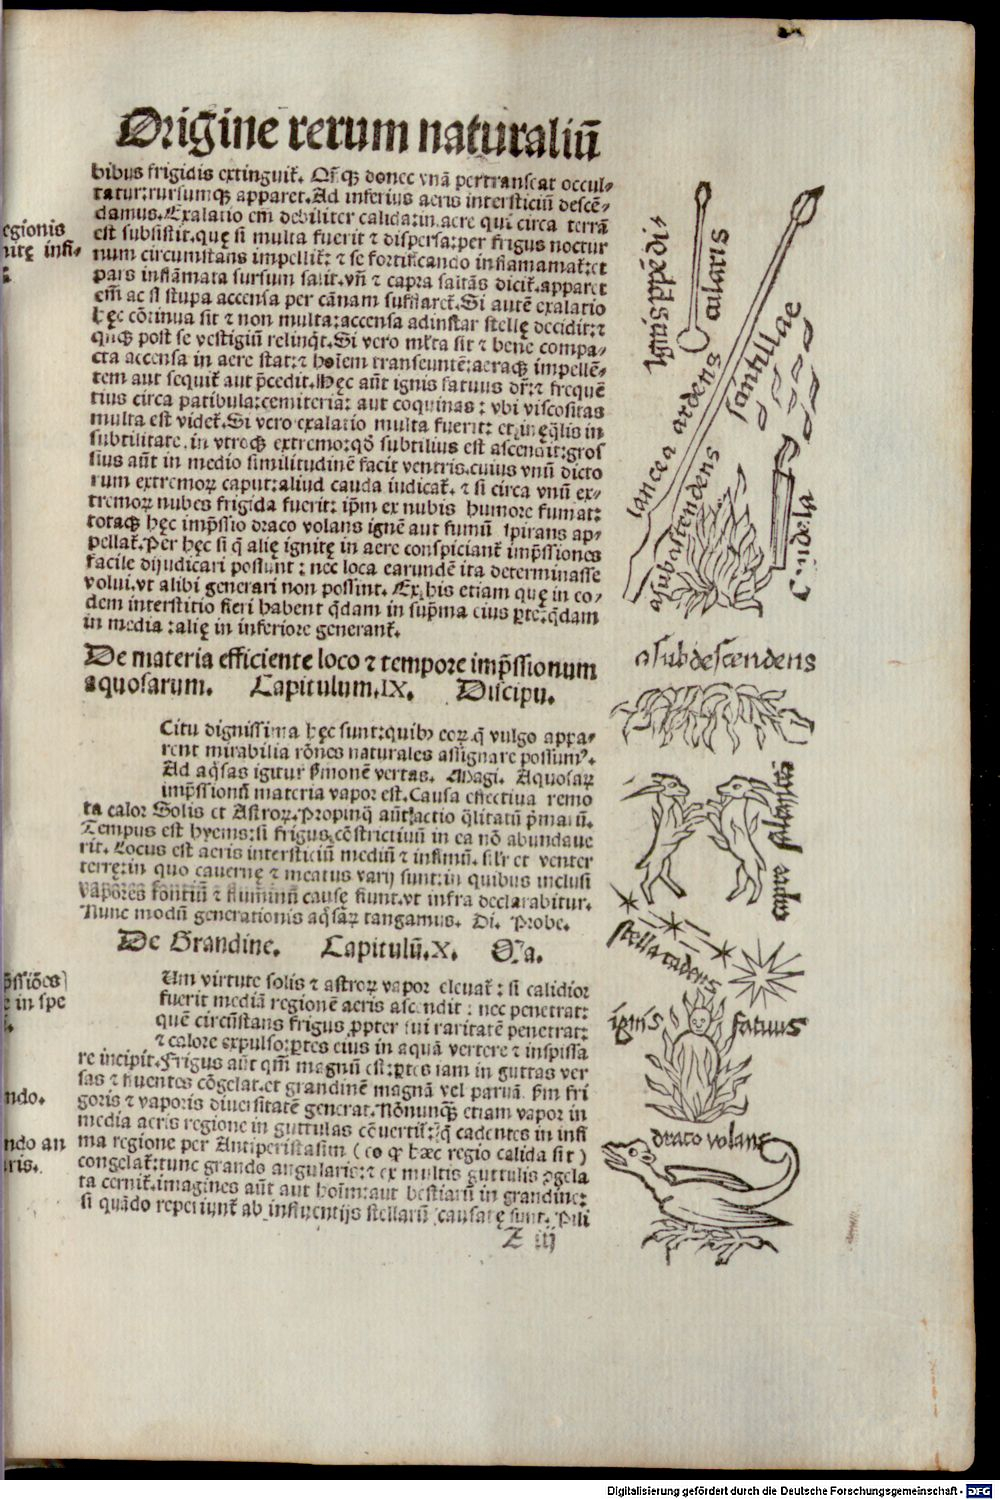 Origine rerum naturaliū
bibus frigidis extinguit᷑. Qr̄q᷒ donec vnā pertranseat occul⸗
tatur:rursumq᷒ apparet. Ad inferius aeris intersticiū descē⸗
damus. Exalatio em̄ debiliter calida:in aere qui circa terrā
est subsistit. quę si multa fuerit ⁊ dispersa: per frigus noctur
num circumstans impellit᷑: ⁊ se fortificando inflamamat᷑: et
pars inflāmata sursum salit. vn̄ ⁊ capra saltās dicit᷑. apparet
em̄ ac si stupa accensa per cānam sufflaret᷑. Si autē exalatio
hęc cōtinua sit ⁊ non multa: accensa ad instar stellę decidit: ⁊
quoq᷒ post se vestigiū relinq̄t. Si vero ml̄ta sit ⁊ bene compa⸗
cta accensa in aere stat: ⁊ hoīem transeuntē: aeraq᷒ impellē⸗
tem aut sequit᷑ aut p̄cedit. Hęc aūt ignis fatuus dr̄: ⁊ frequē
tius circa patibula: cemiteria: aut coquinas: vbi viscositas
multa est videt᷑. Si vero exalatio multa fuerit: et inęq̄lis in
subtilitate, in vtroq᷒ extremo: qō subtilius est ascendit: gros
sius aūt in medio similitudinē facit ventris. cuius vnū dicto
rum extremoꝝ caput: aliud cauda iudicat᷑. ⁊ si circa vnū ex⸗
tremoꝝ nubes frigida fuerit: ip̄m ex nubis humore fumat:
totaq᷒ hęc imp̄ssio draco volans ignē aut fumū spirans ap⸗
pellat᷑. Per hęc si q̄ alię ignitę in aere conspiciant᷑ imp̄ssiones
facile dijudicari possunt: nec loca earundē ita determinasse
volui. vt alibi generari non possint. Ex his etiam quę in eo⸗
dem interstitio fieri habent q̄dam in sup̄ma eius ꝑte: q̄dam
in media: alię in inferiore generant᷑.
De materia efficiente loco ⁊ tempore imp̄ssionum
aquosarum. Capitulum.IX. Discipu.
Scitu dignissima hęc sunt: quibꝰ eoꝝ q̄ vulgo appa⸗
rent mirabilia rōnes naturales assignare possumꝰ.
Ad aq̄sas igitur s̄monē vertas. Magi. Aquosaꝝ
imp̄ssionū materia vapor est. Causa effectiua remo
ta calor Solis et Astroꝝ. Propinq̄ aūt: actio q̄litatū p̄maꝝ.
Tempus est hyems: si frigus cōstrictiuū in ea nō abundaue
rit. Locus est aeris interstitiū mediū ⁊ infimū. sil̄r et venter
terrę: in quo cauernę ⁊ meatus varij sunt: in quibus inclusi
vapores fontiū ⁊ fluminū cause fiunt. vt infra declarabitur.
Nunc modū generationis aq̄saꝝ tangamus. Di. Probe.
De Grandine. Capitulū.X. Ma.
Cum virtute solis ⁊ astroꝝ vapor eleuat᷑: si calidior
fuerit mediā regionē aeris ascendit: nec penetrat:
quē circūstans frigus ꝓpter sui raritatē penetrat:
⁊ calore expulso: ꝑtes eius in aquā vertere ⁊ inspissa
re incipit. Frigus aūt qm̄ magnū est: ꝑtes iam in guttas ver
sas ⁊ fluentes cōgelat. et grandinē magnā vel paruā. s̄m fri
goris ⁊ vaporis diuersitatē generat. Nōnunq᷒ etiam vapor in
media aeris regione in guttulas cōuertit᷑: q̄ cadentes in infi
ma regione per Antiperistasim (eo ꝙ hæc regio calida sit)
congelat᷑: tunc grando angularis: ⁊ ex multis guttulis ꝯgela
ta cernit᷑. imagines aūt aut hoīm: aut bestiarū in grandine:
si quādo reperiunt᷑ ab influentijs stellarū causatę sunt. Pili
Z iij
egionis
nitę infi⸗
p̄ssiōes
e in spe
ndo.
ndo an
ris.
Ignis ꝑpēdi⸗
cularis
lancea ardens
santillae
asub ascendens
Cādela
asub descendens
capre saltantes
stella cadens
ignis fatuus
draco volans
Digitalisierung gefördert durch die Deutsche Forschungsgemeinschaft - DFG